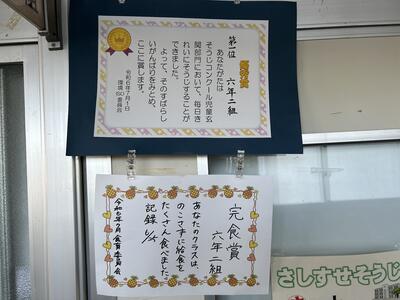 優秀賞
第一位 六年二組
あなたがたは
そうじコンクール児童玄
関部門において、毎日き
れいにそうじすることが
できました。
よって、そのすばらし
いがんばりをみとめ、
ここに賞します。
令和6年7月1日
環境ISO委員会
完食賞
六年二組
あなたのクラスは、
のこさずに給食を
たくさん食べました。
記録
食育委員会
さしすせそうじ